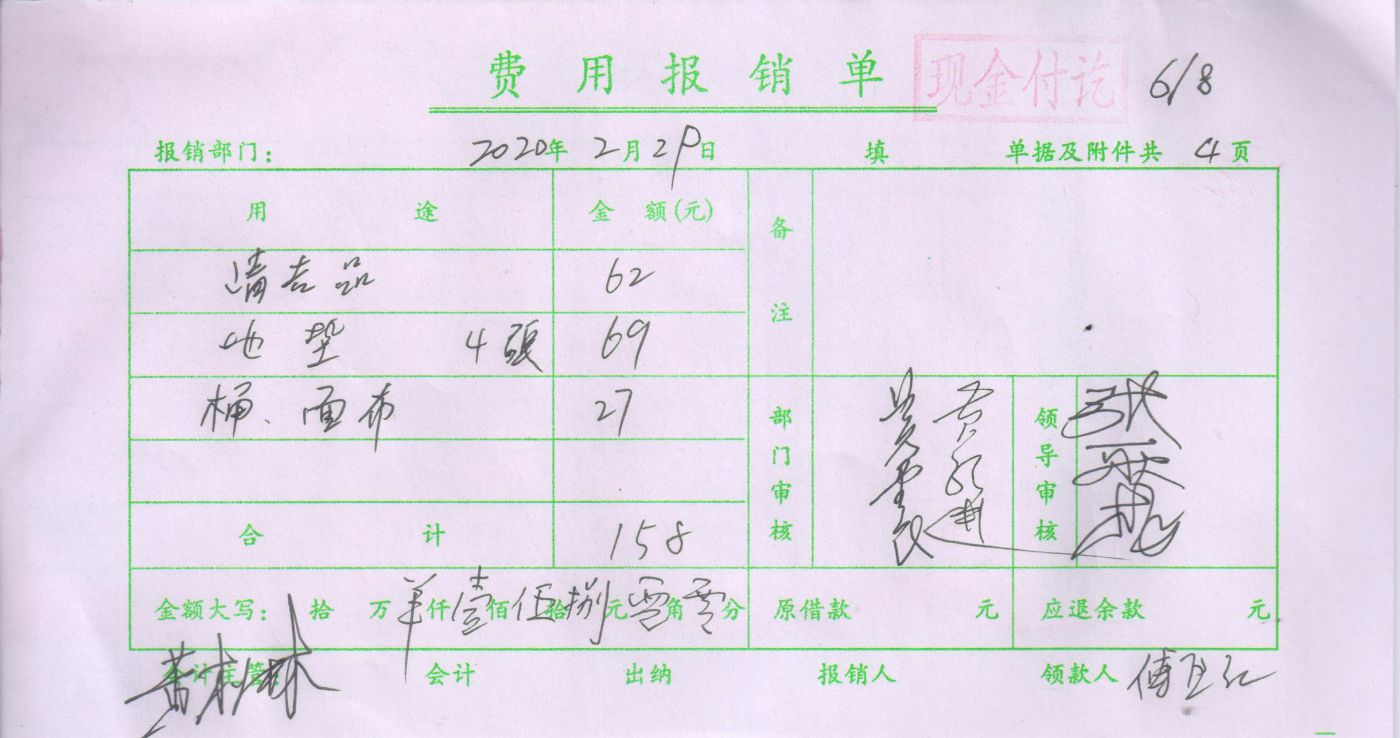 费用报销单 现金付讫 6/8
报销部门: 2020年 2月 29日 填 单据及附件共 4页
用途 金额(元) 备注
清吉品 62
地垫 4張 69
桶、面布 27
部门审核 领导审核
合计 158
金额大写: 拾 万 羊仟壹佰伍拾捌元零角零分 原借款 元 应退余款 元
会计主管: 会计 出纳 报销人 领款人